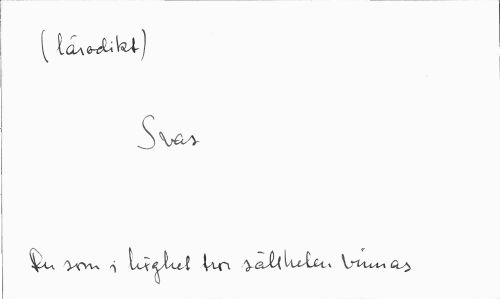 (lärodikt)
Svar
Du som i höghet tror sällheten vinnas